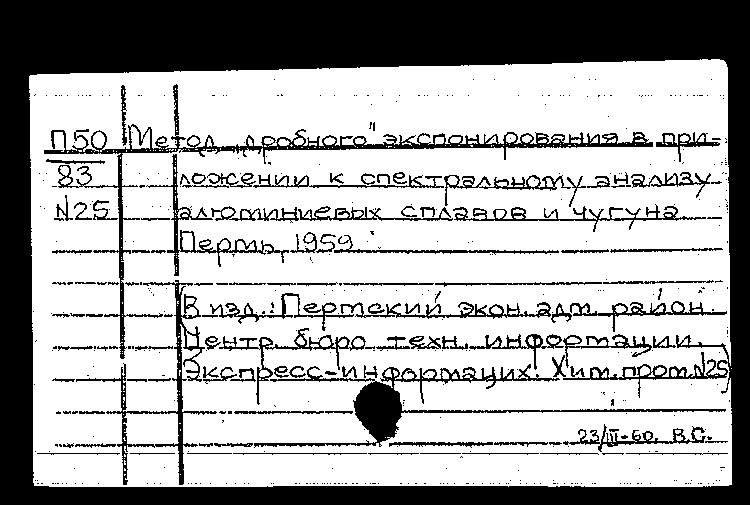 П50 Метод „дробного" экспонирования в при-
83 ложении к спектральному анализу
N25 алюминиевых сплавов и чугуна
Пермь, 1959
В изд.: Пермский экон. адм. район.
Центр. бюро техн. информации.
Экспресс-информация. Хим. пром. N25)
23/III-60. В.С.